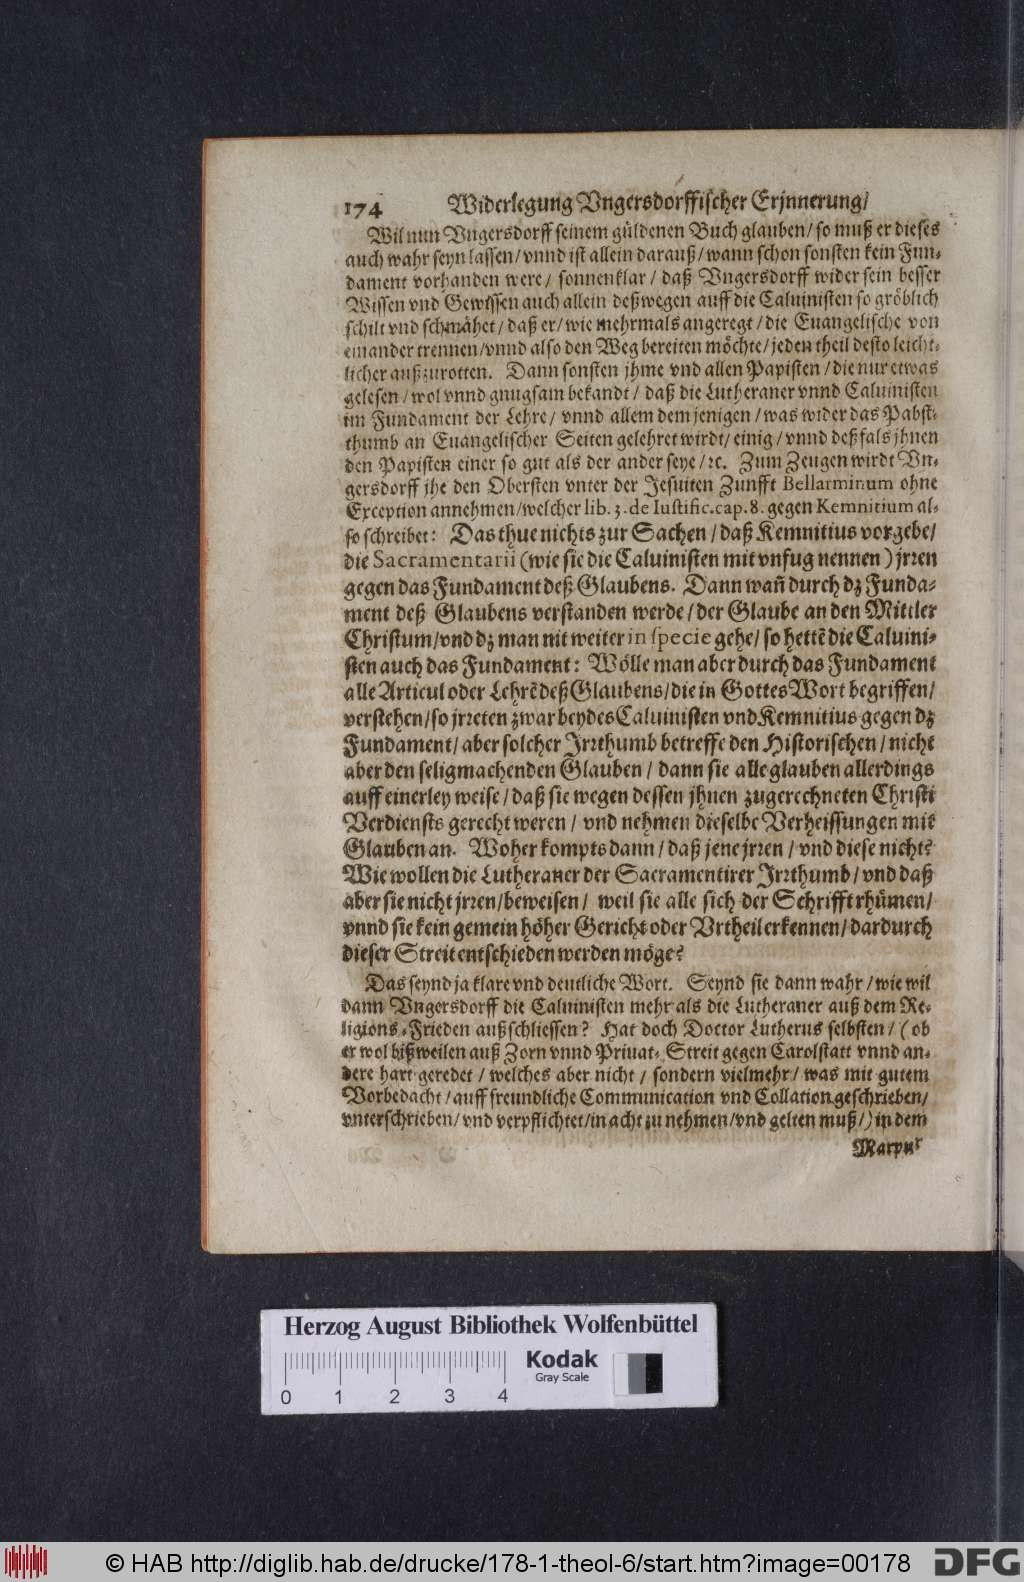 174 Widerlegung Vngersdorffischer Erjnnerung/
Wil nun Vngersdorff seinem güldenen Buch glauben/ so muß er dieses
auch wahr seyn lassen/ vnnd ist allein darauß/ wann schon sonsten kein Fun-
dament vorhanden were/ sonnenklar/ daß Vngersdorff wider sein besser
Wissen vnd Gewissen auch allein deßwegen auff die Caluinisten so gröblich
schilt vnd schmähet/ daß er/ wie mehrmals angeregt/ die Euangelische von
einander trennen/ vnnd also den Weg bereiten möchte/ jeden theil desto leicht-
licher außzurotten. Dann sonsten jhme vnd allen Papisten/ die nur etwas
gelesen/ wol vnnd gnugsam bekandt/ daß die Lutheraner vnnd Caluinisten
im Fundament der Lehre/ vnnd allem dem jenigen/ was wider das Pabst-
thumb an Euangelischer Seiten gelehret wirdt/ einig/ vnnd deßfals jhnen
den Papisten einer so gut als der ander seye/ ꝛc. Zum Zeugen wirdt Vn-
gersdorff jhe den Obersten vnter der Jesuiten Zunfft Bellarminum ohne
Exception annehmen/ welcher lib. 3. de Iustific. cap. 8. gegen Kemnitium al-
so schreibet: Das thue nichts zur Sachen/ daß Kemnitius vorgebe/
die Sacramentarii (wie sie die Caluinisten mit vnfug nennen) jrren
gegen das Fundament deß Glaubens. Dann wañ durch dz Funda-
ment deß Glaubens verstanden werde/ der Glaube an den Mittler
Christum/ vnd dz man nit weiter in specie gehe/ so hettē die Caluini-
sten auch das Fundament: Wölle man aber durch das Fundament
alle Articul oder Lehrē deß Glaubens/ die in Gottes Wort begriffen/
verstehen/ so jrreten zwar beydes Caluinisten vnd Kemnitius gegen dz
Fundament/ aber solcher Irrthumb betreffe den Historischen/ nicht
aber den seligmachenden Glauben/ dann sie alle glauben allerdings
auff einerley weise/ daß sie wegen dessen jhnen zugerechneten Christi
Verdiensts gerecht weren/ vnd nehmen dieselbe Verheissungen mit
Glauben an. Woher kompts dann/ daß jene jrren/ vnd diese nicht?
Wie wollen die Lutheraner der Sacramentirer Irrthumb/ vnd daß
aber sie nicht jrren/ beweisen/ weil sie alle sich der Schrifft rhümen/
vnnd sie kein gemein höher Gericht oder Vrtheil erkennen/ dardurch
dieser Streit entschieden werden möge?
Das seynd ja klare vnd deutliche Wort. Seynd sie dann wahr/ wie wil
dann Vngersdorff die Caluinisten mehr als die Lutheraner auß dem Re-
ligions-Frieden außschliessen? Hat doch Doctor Lutherus selbsten/ (ob
er wol bißweilen auß Zorn vnnd Priuat-Streit gegen Carolstatt vnnd an-
dere hart geredet/ welches aber nicht/ sondern vielmehr/ was mit gutem
Vorbedacht/ auff freundliche Communication vnd Collation geschrieben/
vnterschrieben/ vnd verpflichtet/ in acht zu nehmen/ vnd gelten muß/) in dem
Marpur
Herzog August Bibliothek Wolfenbüttel
Kodak
Gray Scale
0 1 2 3 4
© HAB http://diglib.hab.de/drucke/178-1-theol-6/start.htm?image=00178
DFG